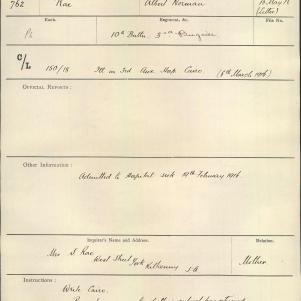 762 Rae Albert Norman
(Letter)
Rank. Regiment, &c. File No.
10th Battn
C/L 150/18 Ill in 3rd Aux Hosp Cairo. (8th March 1916)
OFFICIAL REPORTS :
Other Information :
Admitted to Hospital sick 19th February 1916
Inquirer's Name and Address. Relation.
Mrs S Rae Mother
West Street York Kilkenny S.A.
Instructions :
Write Cairo.